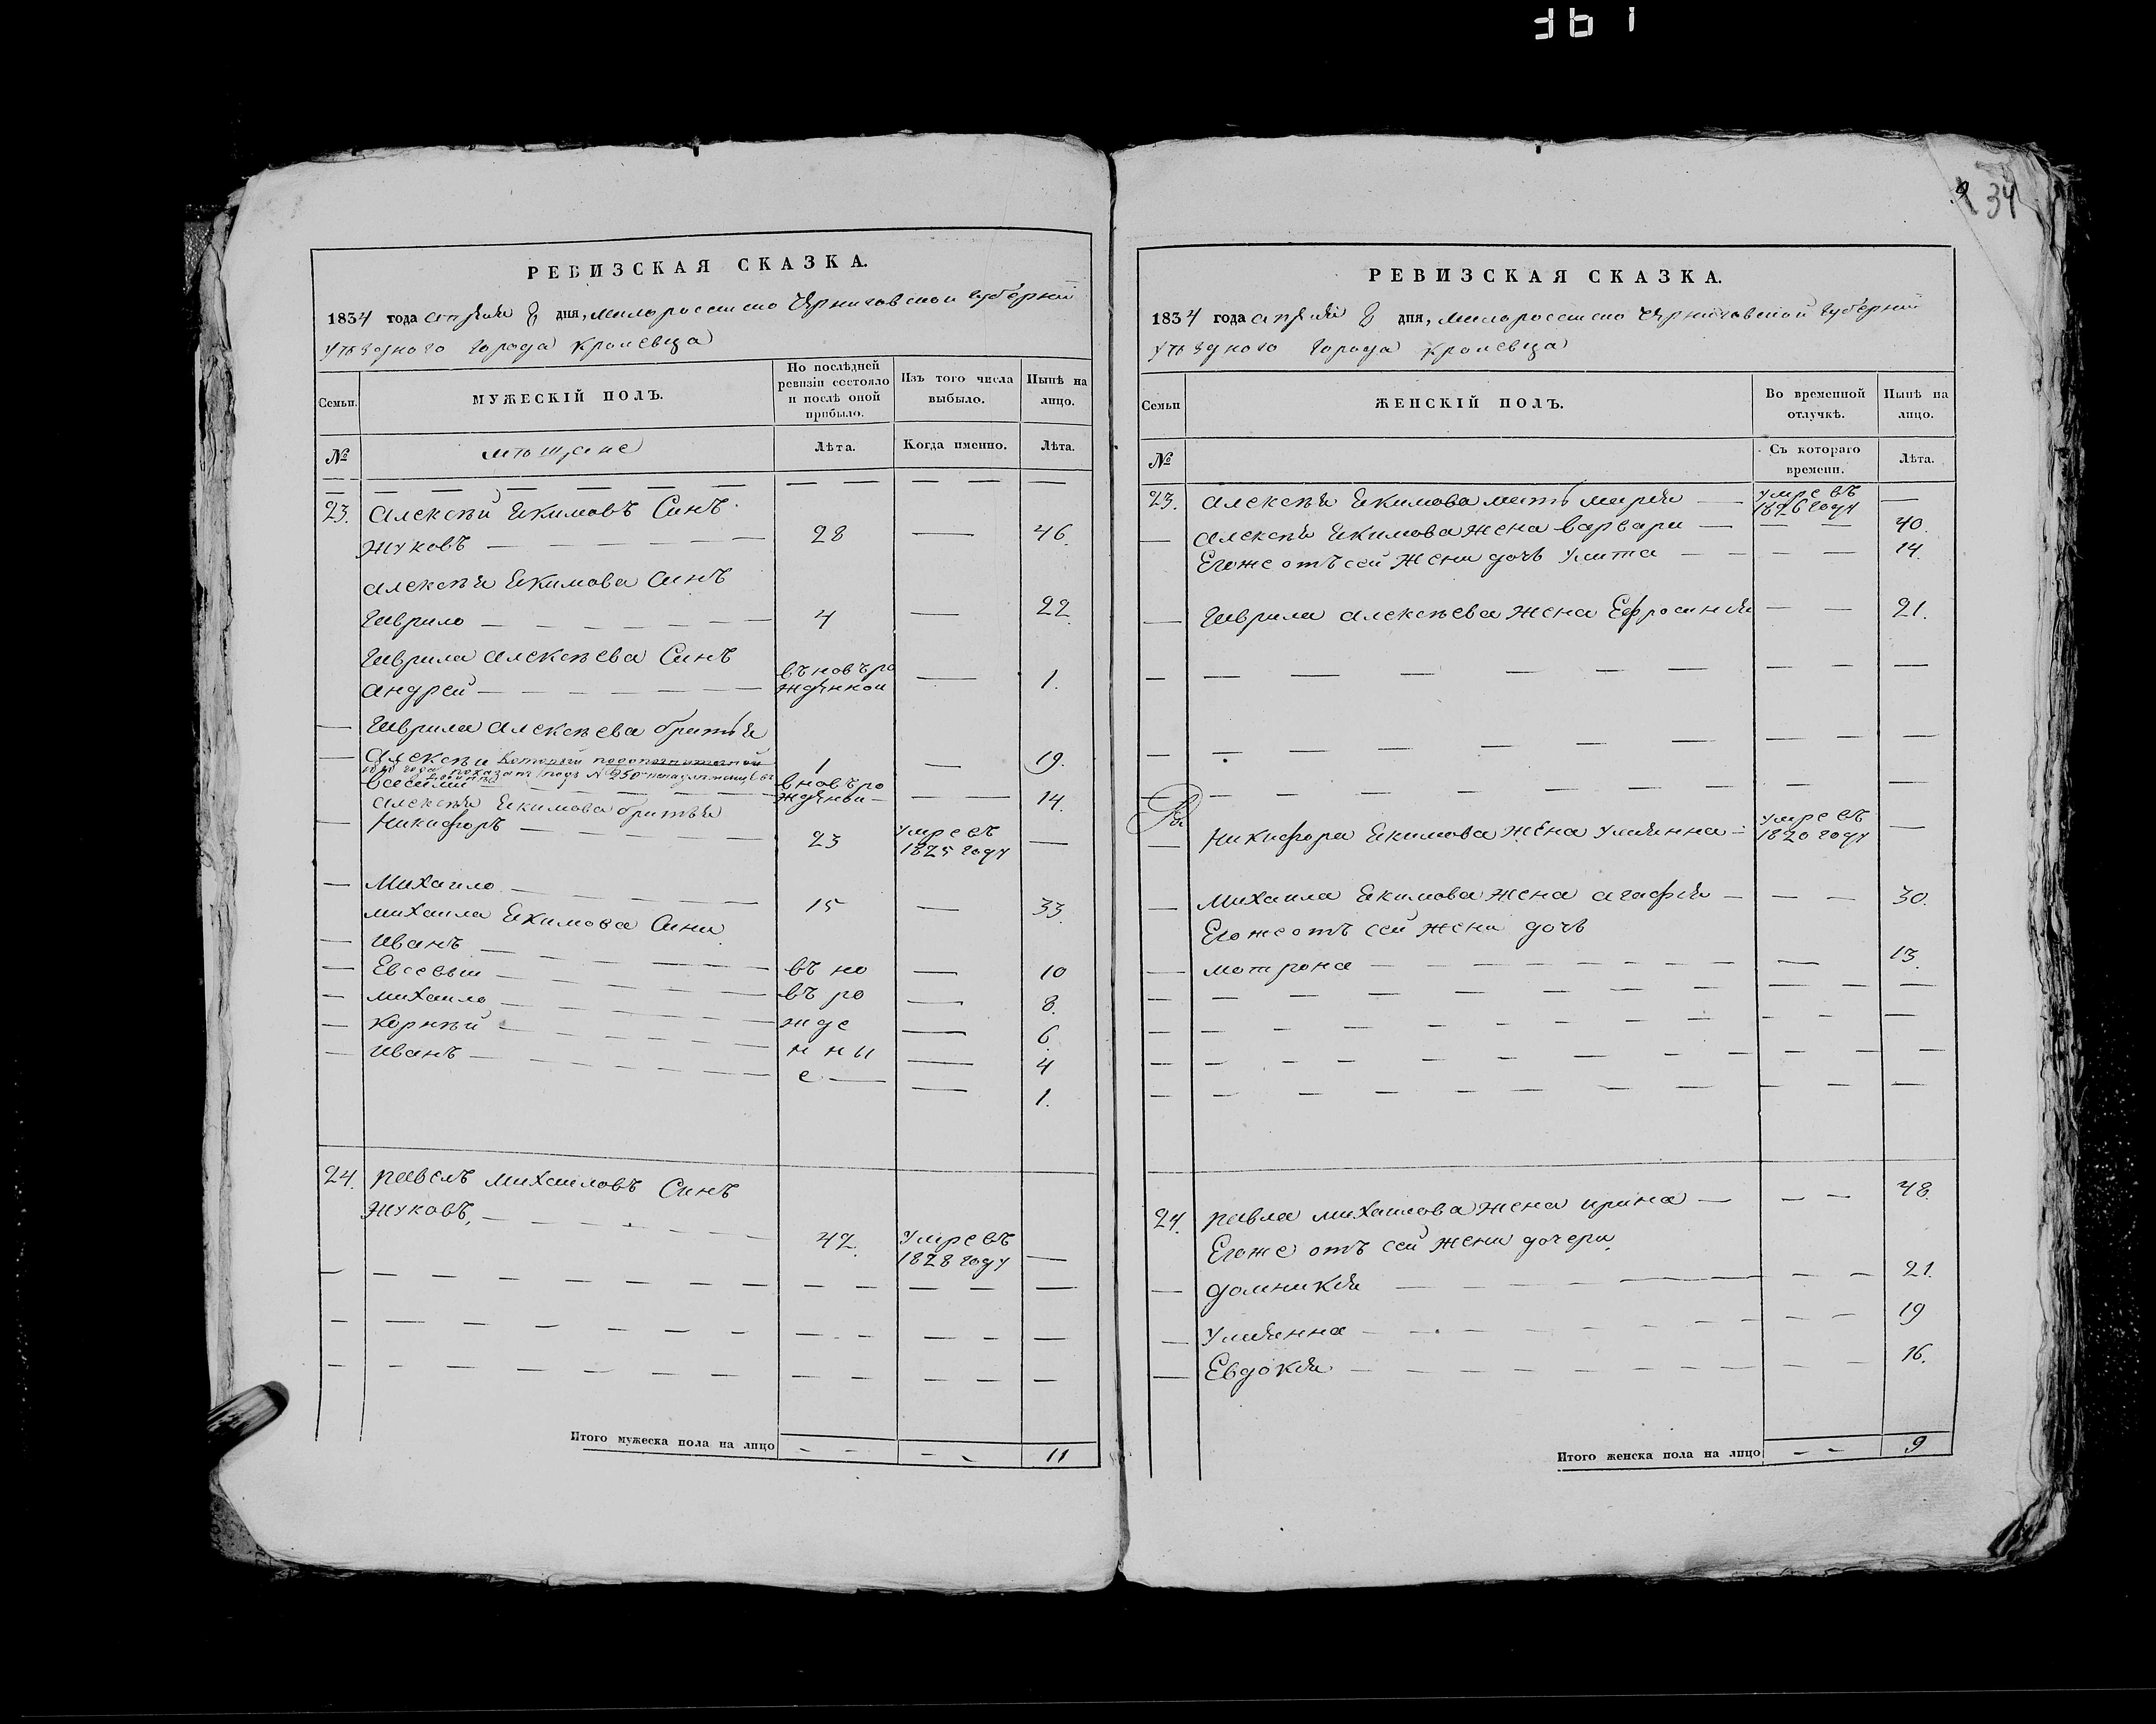 361
9 34
РЕВИЗСКАЯ СКАЗКА.
1834 года апреля 8 дня, малороссиско Черниговской губернии
уѣздного города Кролевца
Семьи.
МУЖЕСКІЙ ПОЛЪ.
По послѣдней ревизіи состояло и послѣ оной прибыло.
Изъ того числа выбыло.
Нынѣ на лицо.
№ мѣщане Лѣта. Когда именно. Лѣта.
23. Алексѣй Екимовъ Синъ
Жуковъ 28 — 46.
Алексѣя Екимова Синъ
Гаврило 4 — 22
Гаврила Алексѣева Синъ
Андрей въновъ рожденной — 1.
Гаврила Алексѣева братья
Алексѣй который 1 — 19.
показанъ подъ № 250
Василий вновъ рожденой — 14.
Алексѣя Екимова братья
Никифоръ 23 умре въ 1825 году —
Михаило 15 — 33.
Михаила Екимова Сини
Иванъ въ но — 10
Евсевѣи въ ро — 8.
Михаило жде — 6.
Корнѣй н ны — 4
Иванъ е — 1.
24. Павелъ Михаиловъ Синъ
Жуковъ, 42. Умре въ 1828 году —
Итого мужеска пола на лицо 11
РЕВИЗСКАЯ СКАЗКА.
1834 года апреля 8 дня, малороссиско Черниговской Губернии
уѣздного города Кролевца
Семьи
ЖЕНСКІЙ ПОЛЪ.
Во временной отлучкѣ.
Нынѣ на лицо.
№ Съ котораго времени. Лѣта.
23. Алексѣя Екимова мать Мария умре въ 1826 году —
Алексѣя Екимова жена Варвара 40.
Егоже отъ сей жени дочъ Улита 14.
Гаврила Алексѣева жена Ефросиния 21.
Никифора Екимова жена Улиянна умре въ 1820 году —
Михаила Екимова жена Агафия 30.
Егоже отъ сей жени дочъ
Мотрона 13.
24. Павла Михаилова жена Ирина 48.
Егоже отъ сей жени дочери
Домникия 21.
Улиянна 19
Евдокия 16.
Итого женска пола на лицо 9